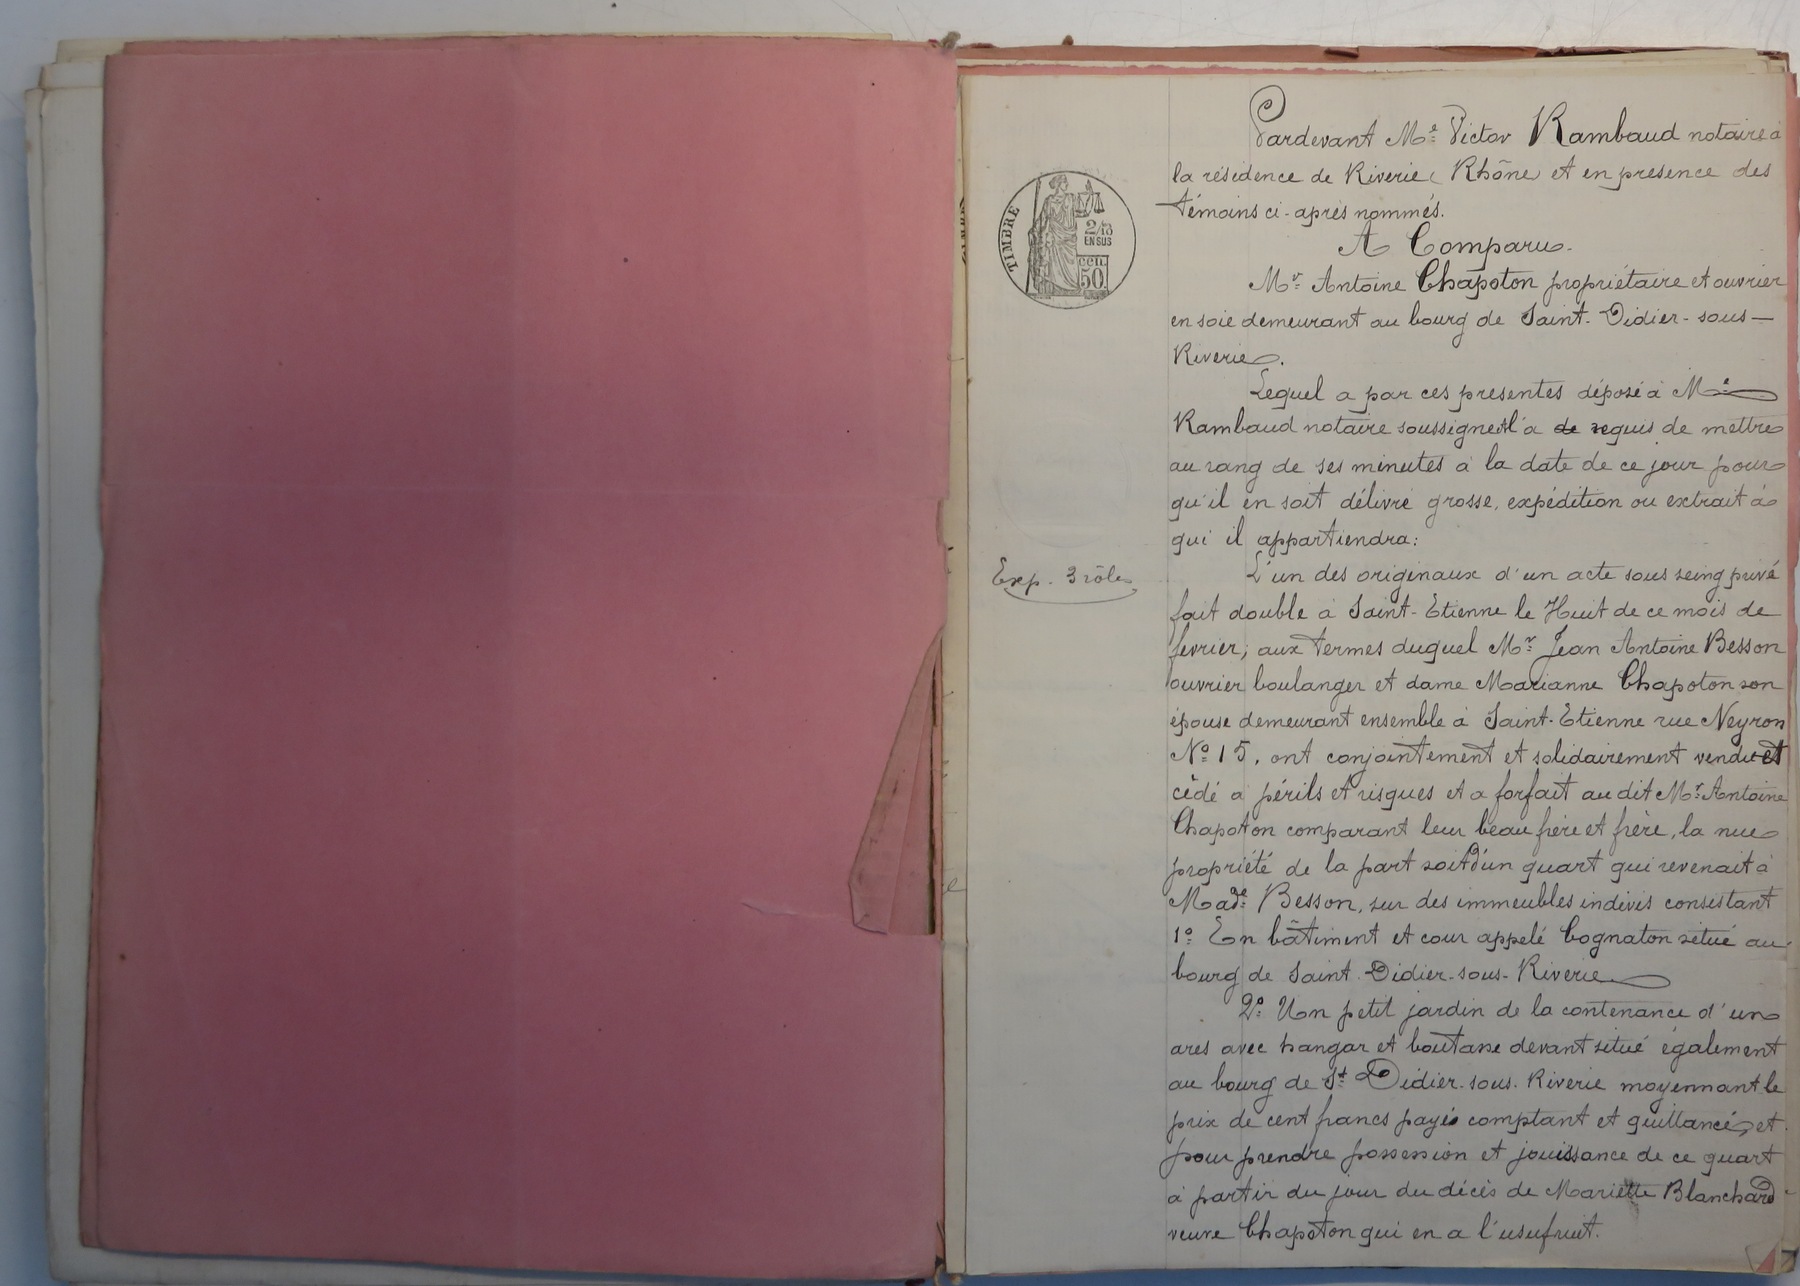 Pardevant Me Victor Rambaud notaire à
la résidence de Riverie (Rhône) et en présence des
témoins ci-après nommés.
TIMBRE
2/10
EN SUS
cen.
50
A Comparu.
Mr Antoine Chapoton propriétaire et ouvrier
en soie demeurant au bourg de Saint-Didier-sous-
Riverie.
Lequel a par ces présentes déposé à Me
Rambaud notaire soussigné et l'a de requis de mettre
au rang de ses minutes à la date de ce jour pour
qu'il en soit délivré grosse, expédition ou extrait à
qui il appartiendra:
Exp. 3 rôles
L'un des originaux d'un acte sous seing privé
fait double à Saint-Etienne le Huit de ce mois de
fevrier; aux termes duquel Mr Jean Antoine Besson
ouvrier boulanger et dame Marianne Chapoton son
épouse demeurant ensemble à Saint-Etienne rue Neyron
No 15, ont conjointement et solidairement vendu et
cèdé à périls et risques et a forfait au dit Mr Antoine
Chapoton comparant leur beau frère et frère, la nue
propriété de la part soit d'un quart qui revenait à
Made Besson, sur des immeubles indivis consistant
1o En bâtiment et cour appelé Cognaton situé au
bourg de Saint Didier-sous-Riverie
2o Un petit jardin de la contenance d'un
ares avec hangar et boutasse devant situé également
au bourg de St Didier-sous-Riverie moyennant le
prix de cent francs payés comptant et quittancé, et
pour prendre possession et jouissance de ce quart
à partir du jour du décès de Mariette Blanchard
veuve Chapoton qui en a l'usufruit.